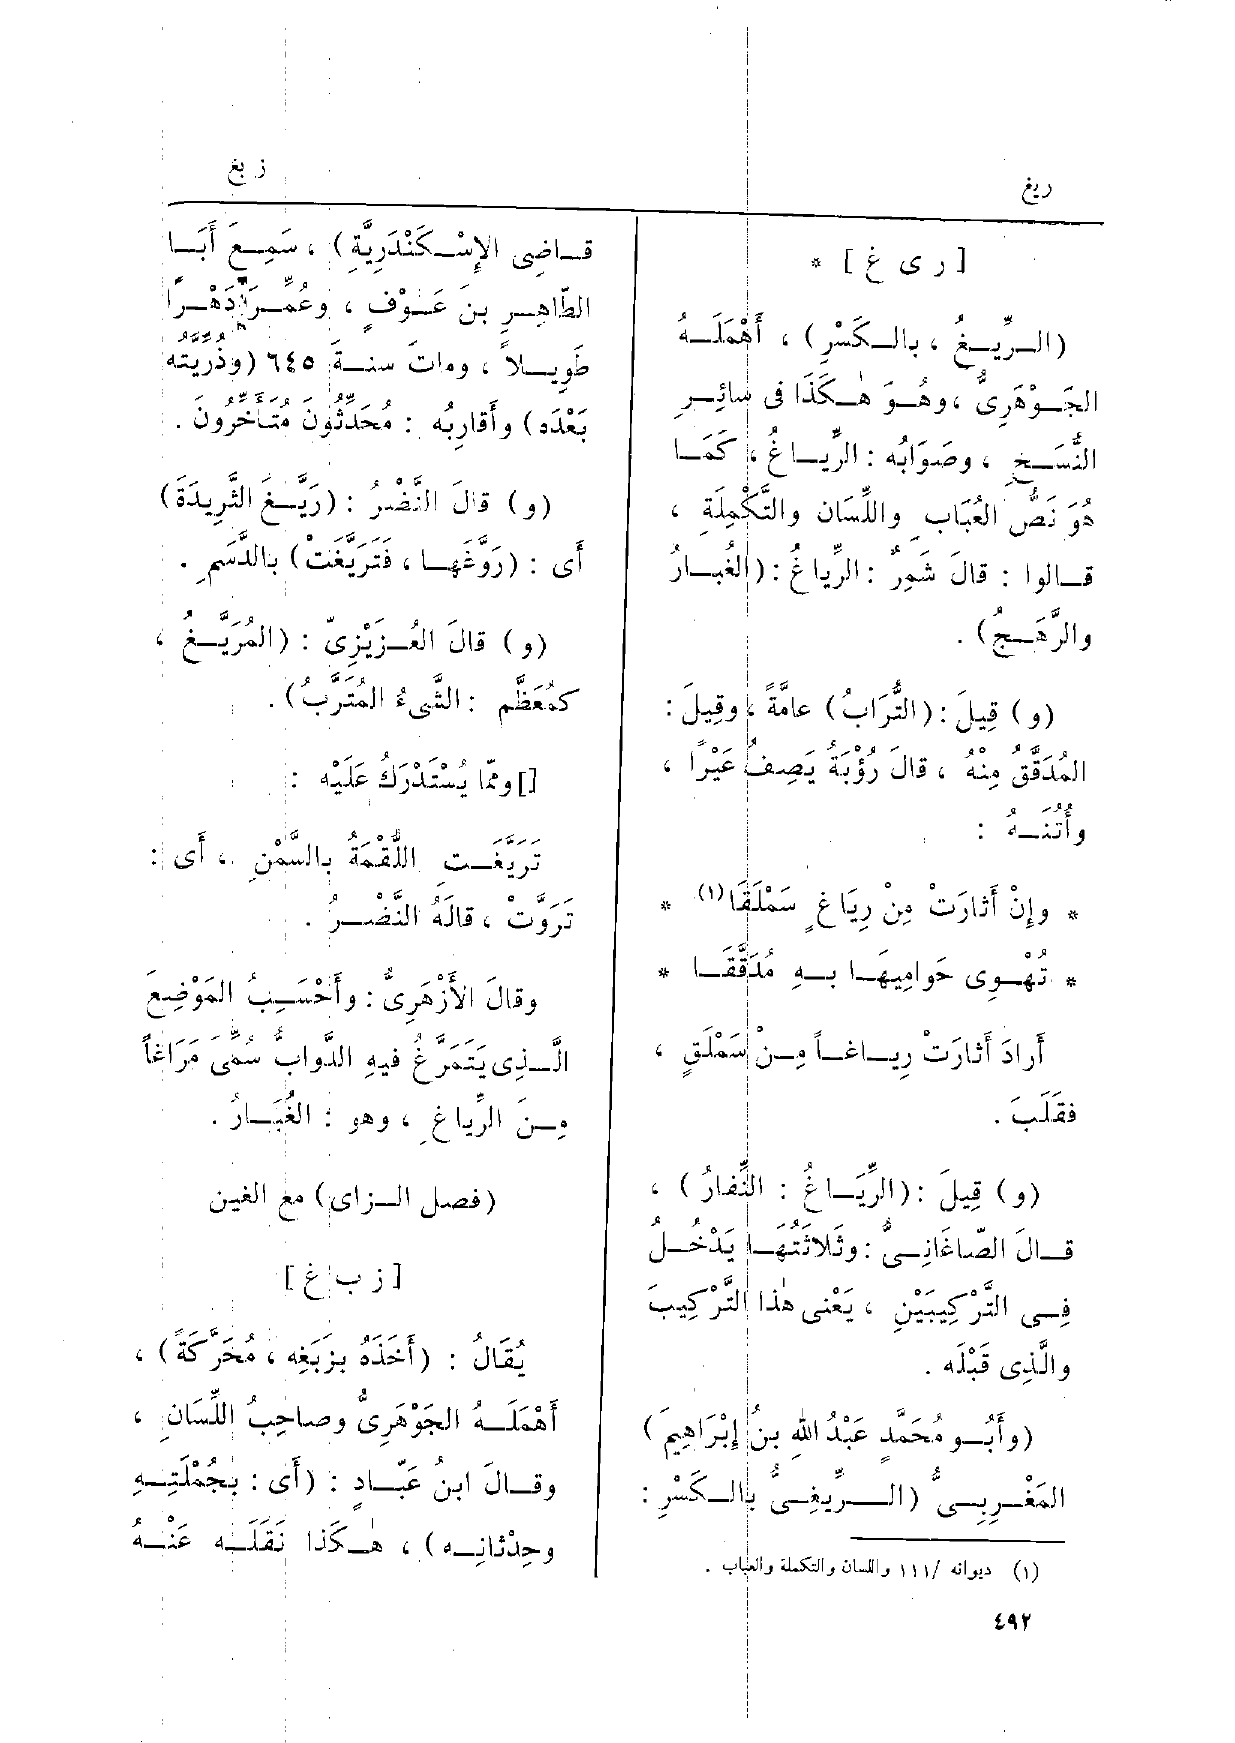 ريغ
زبغ
[ ر ى غ ] *
(الرِّيــغُ ، بالــكَسْرِ) ، أَهْمَلَــهُ
الجَــوْهَرِىُّ ، وهُــوَ هٰــكَذَا فى سائِــرِ
النُّسَــخِ ، وصَوَابُه : الرِّيــاغُ ، كَمَــا
هُوَ نَصُّ العُبَابِ واللِّسَان والتَّكْمِلَةِ ،
قــالوا : قالَ شَمِرٌ : الرِّياغُ : (الغُبــارُ
والرَّهَــجُ) .
(و) قِيلَ : (التُّرَابُ) عامَّةً ، وقِيلَ :
المُدَقَّقُ مِنْهُ ، قالَ رُؤْبَةُ يَصِفُ عَيْرًا ،
وأُتُنَــهُ :
* وإِنْ أَثارَتْ مِنْ رِيَاغٍ سَمْلَقَا(١) *
* تُهْــوِى حَوامِيهَــا بــهِ مُدَقَّقَــا *
أَرادَ أَثارَتْ رِيــاغــاً مِــنْ سَمْلَقٍ ،
فقَلَبَ .
(و) قِيلَ : (الرِّيَــاغُ : النِّفارُ) ،
قــالَ الصّاغَانِــىُّ : وثَلاثَتُهَــا يَدْخُــلُ
فِــى التَّرْكِيبَيْنِ ، يَعْنى هٰذا التَّرْكِيبَ
والَّذِى قَبْلَه .
(وأَبُــو مُحَمَّدٍ عَبْدُ اللهِ بنُ إِبْرَاهِيمَ)
المَغْــرِبِــىُّ (الــرِّيغِــىُّ بالــكَسْرِ :
(١) ديوانه /١١١ واللسان والتكملة والعباب .
قــاضِى الإِسْــكَنْدَرِيَّةِ) ، سَمِــعَ أَبَــا
الطّاهِــرِ بنَ عَــوْفٍ ، وعُمِّــرَ دَهْــرًا
طَوِيــلاً ، ومات سنــة ٦٤٥ (وذُرِّيَّتُه
بَعْدَه) وأَقارِبُه : مُحَدِّثُونَ مُتَأَخِّرُونَ .
(و) قالَ النَّضْرُ : (رَيَّــغَ الثَّرِيدَةَ)
أَى : (رَوَّغَهــا ، فَتَرَيَّغَتْ) بالدَّسَمِ .
(و) قالَ العُــزَيْزِىّ : (المُرَيَّــغُ ،
كمُعَظَّمٍ : الشَّىءُ المُتَرَّبُ) .
[]ومّما يُسْتَدْرَكُ عَلَيْه :
تَرَيَّغَــتِ اللُّقْمَةُ بالسَّمْنِ ، أَى :
تَرَوَّتْ ، قالَهُ النَّضْــرُ .
وقالَ الأَزْهَرِىُّ : وأَحْسَــبُ المَوْضِعَ
الَّــذِى يَتَمَرَّغُ فيهِ الدَّوابُّ سُمِّىَ مَرَاغاً
مِــنَ الرِّياغِ ، وهو : الغُبَــارُ .
(فصل الــزاى) مع الغين
[ ز ب غ ]
يُقَالُ : (أَخَذَهُ بزَبَغِه ، مُحَرَّكَةً) ،
أَهْمَلَــهُ الجَوْهَرِىُّ وصاحِبُ اللِّسَانِ ،
وقــالَ ابنُ عَبّــادٍ : (أَى : بجُمْلَتِــهِ
وحِدْثانِــه) ، هٰــكَذا نَقَلَــه عَنْــهُ
٤٩٢